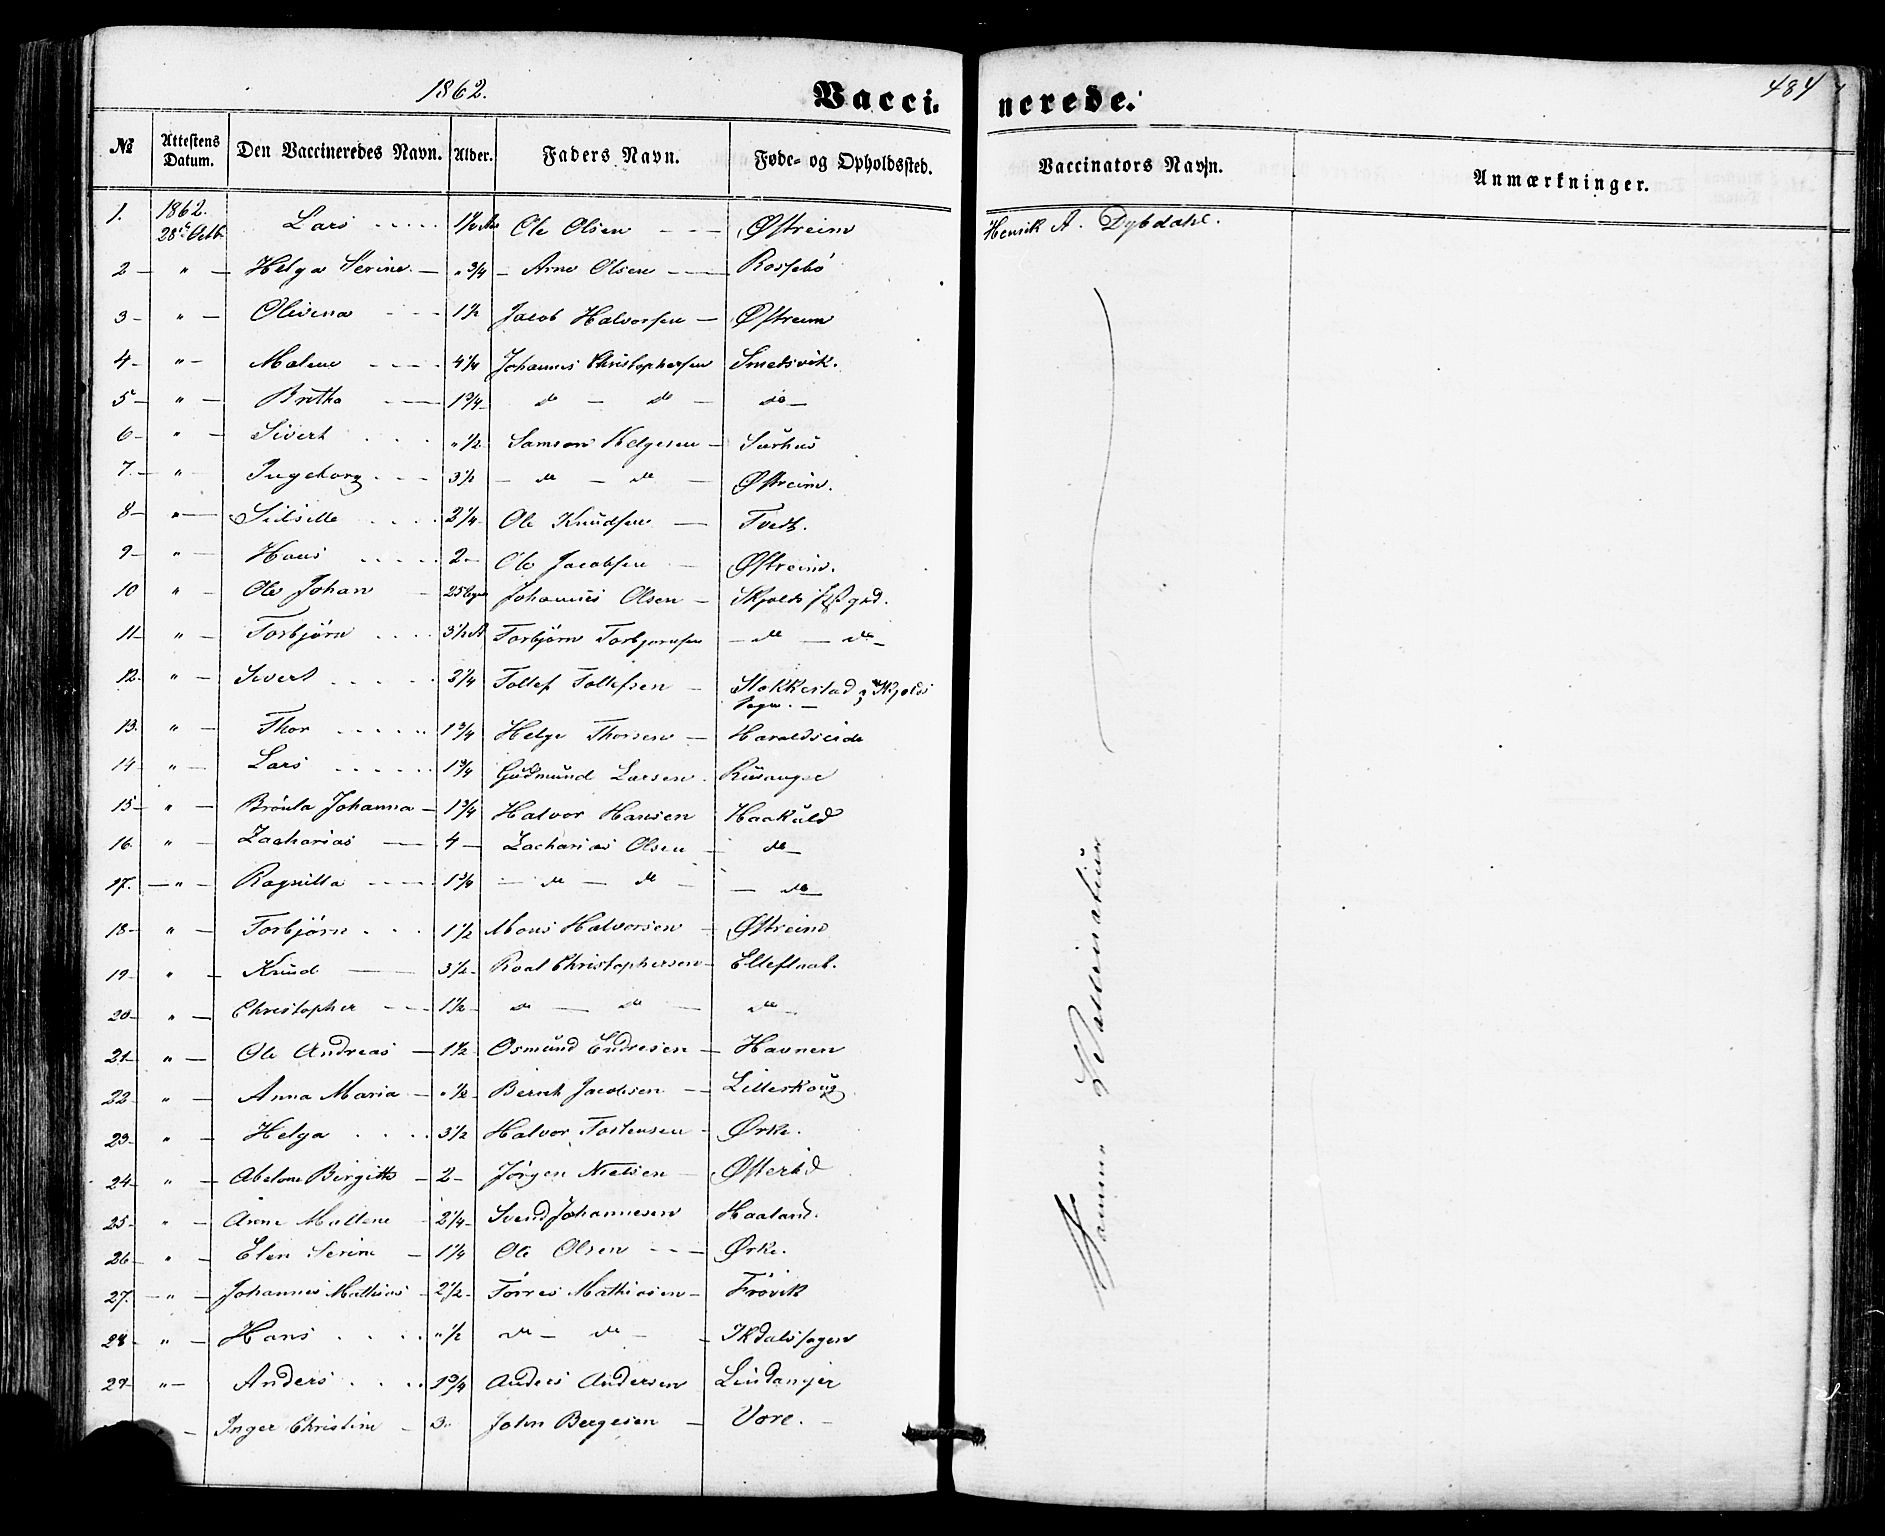 1862.
Vacci- nerede.
484
№ Attestens Datum. Den Vaccineredes Navn. Alder. Faders Navn. Føde- og Opholdssted. Vaccinators Navn. Anmærkninger.
1. 1862. 28de Octb. Lars Ole Olsen Østreim Henrik A. Dybdahl.
2 " Helga Serine " 3/4 Arne Olsen Rossebø
3 " Olivina 1 1/2 Jacob Halvorsen Østreim
4 " Malene 4 1/4 Johannes Christophersen Smedsvik.
5 " Britha 1 3/4 do do do
6 " Sivert " 1/2 Samson Helgesen Sørhus
7. " Ingeborg 3 1/2 do do Østreim.
8 " Sidsille 2 1/4 Ole Knudsen Tvedt.
9 " Hans 2 Ole Jacobsen Østreim.
10 " Ole Johan 25 Uger Johannes Olsen Skjolds Præstgd.
11 " Torbjørn 3 1/2 A Torbjørn Torbjørnsen do do
12. " Sivert 2 1/4 Tollef Tollefsen Stokkestad i Skjolds Sogn.
13. " Thor 1 3/4 Helge Thorsen Haraldseide
14 " Lars 1 3/4 Gudmund Larsen Risanger
15 " Brønla Johanna 1 3/4 Halvor Hansen Haakuld
16. " Zacharias 4 Zacharias Olsen do
17. " Ragnilla 1 3/4 do do do
18 " Torbjørn 1 1/2 Mons Halvorsen Østreim
19 " Knud 3 1/2 Roal Christophersen Elleflaat.
20 " Christopher 1 1/2 do do do
21 " Ole Andreas 1 1/2 Osmund Endresen Havnen
22 " Anna Maria " 1/2 Bernt Jacobsen Lilleskoug
23 " Helga 3 1/2 Halvor Tostensen Ørke.
24 " Abelone Birgitte 2 Jørgen Nielsen Østerbø
25 " Anne Mallene 2 1/4 Svend Johannesen Haaland.
26 " Elen Serine 1 1/4 Ole Olsen Ørke.
27. " Johannes Mathias 2 1/2 Tørres Mathiasen Frøvik
28 " Hans " 1/2 do do
29 " Anders 1 3/4 Anders Andersen Lindanger
Inger Christine 3 " John Bergesen Vore.
Samme Vaccinateur